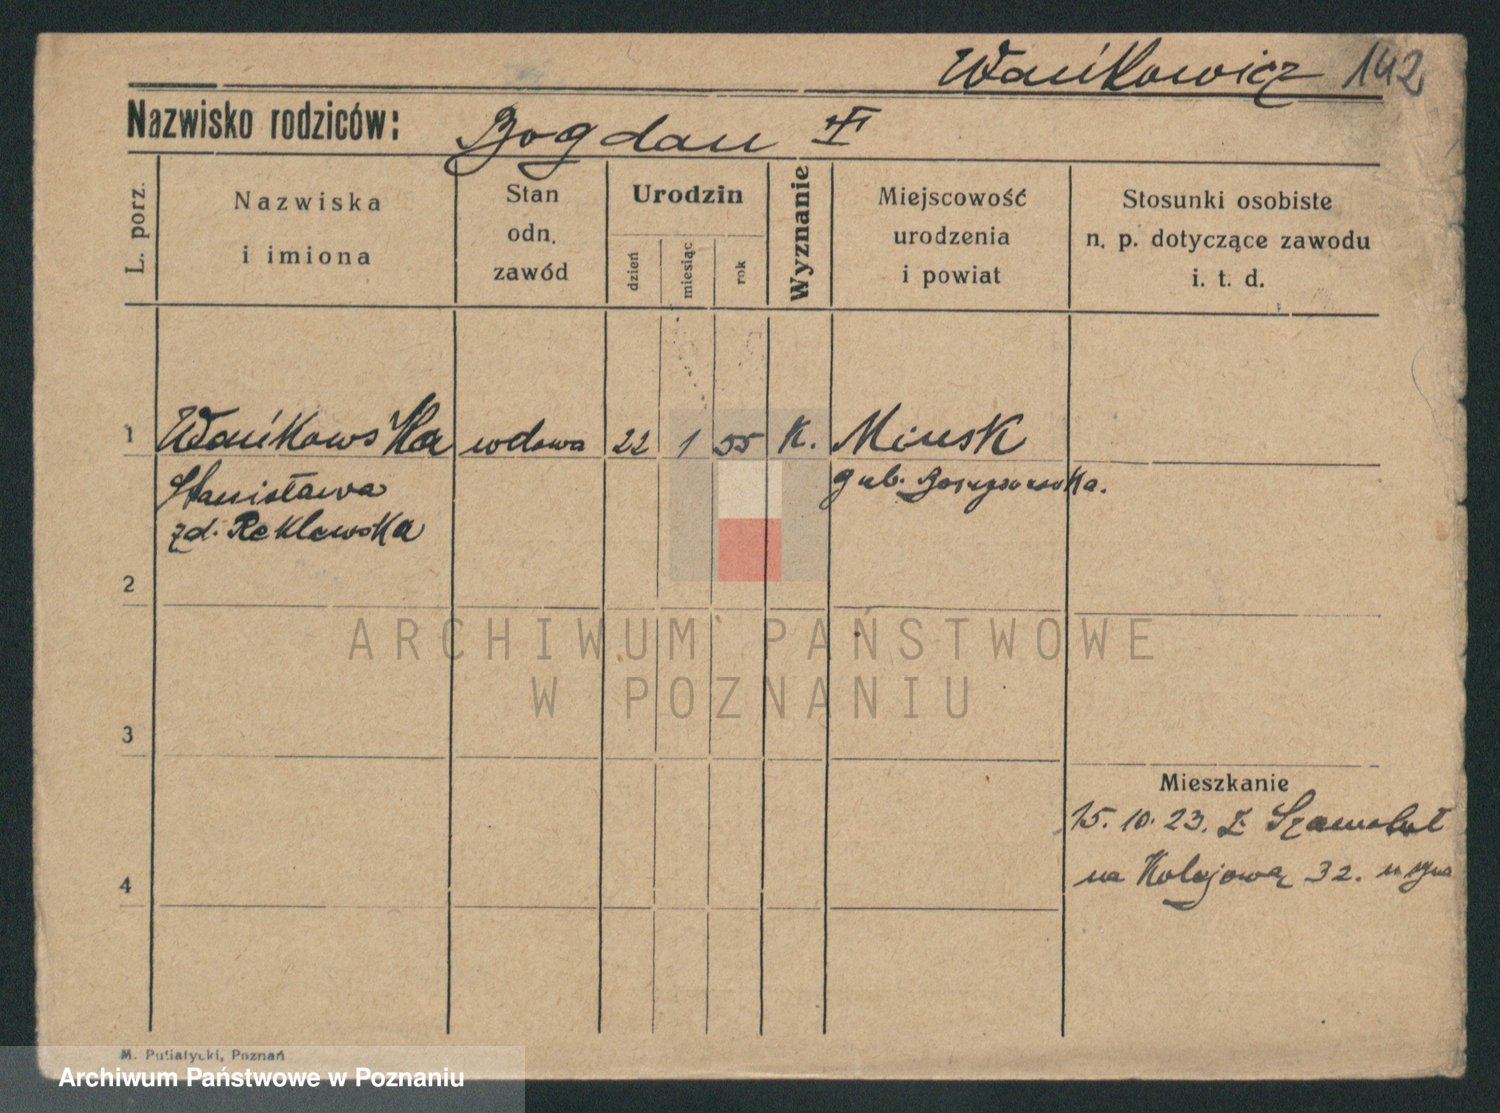 Wańkowicz 142
Nazwisko rodziców: Bogdan
L. porz.
Nazwiska
i imiona
Stan
odn.
zawód
Urodzin
dzień
miesiąc
rok
Wyznanie
Miejscowość
urodzenia
i powiat
Stosunki osobiste
n. p. dotyczące zawodu
i. t. d.
1 Wańkowska wdowa 22 1 55 k. Minsk
Stanisława gub.
zd. Reklewska
2
ARCHIWUM PAŃSTWOWE
W POZNANIU
3
Mieszkanie
15. 10. 23. z Szamotuł
na Kolejową 32.
4
M. Putiatycki, Poznań
Archiwum Państwowe w Poznaniu